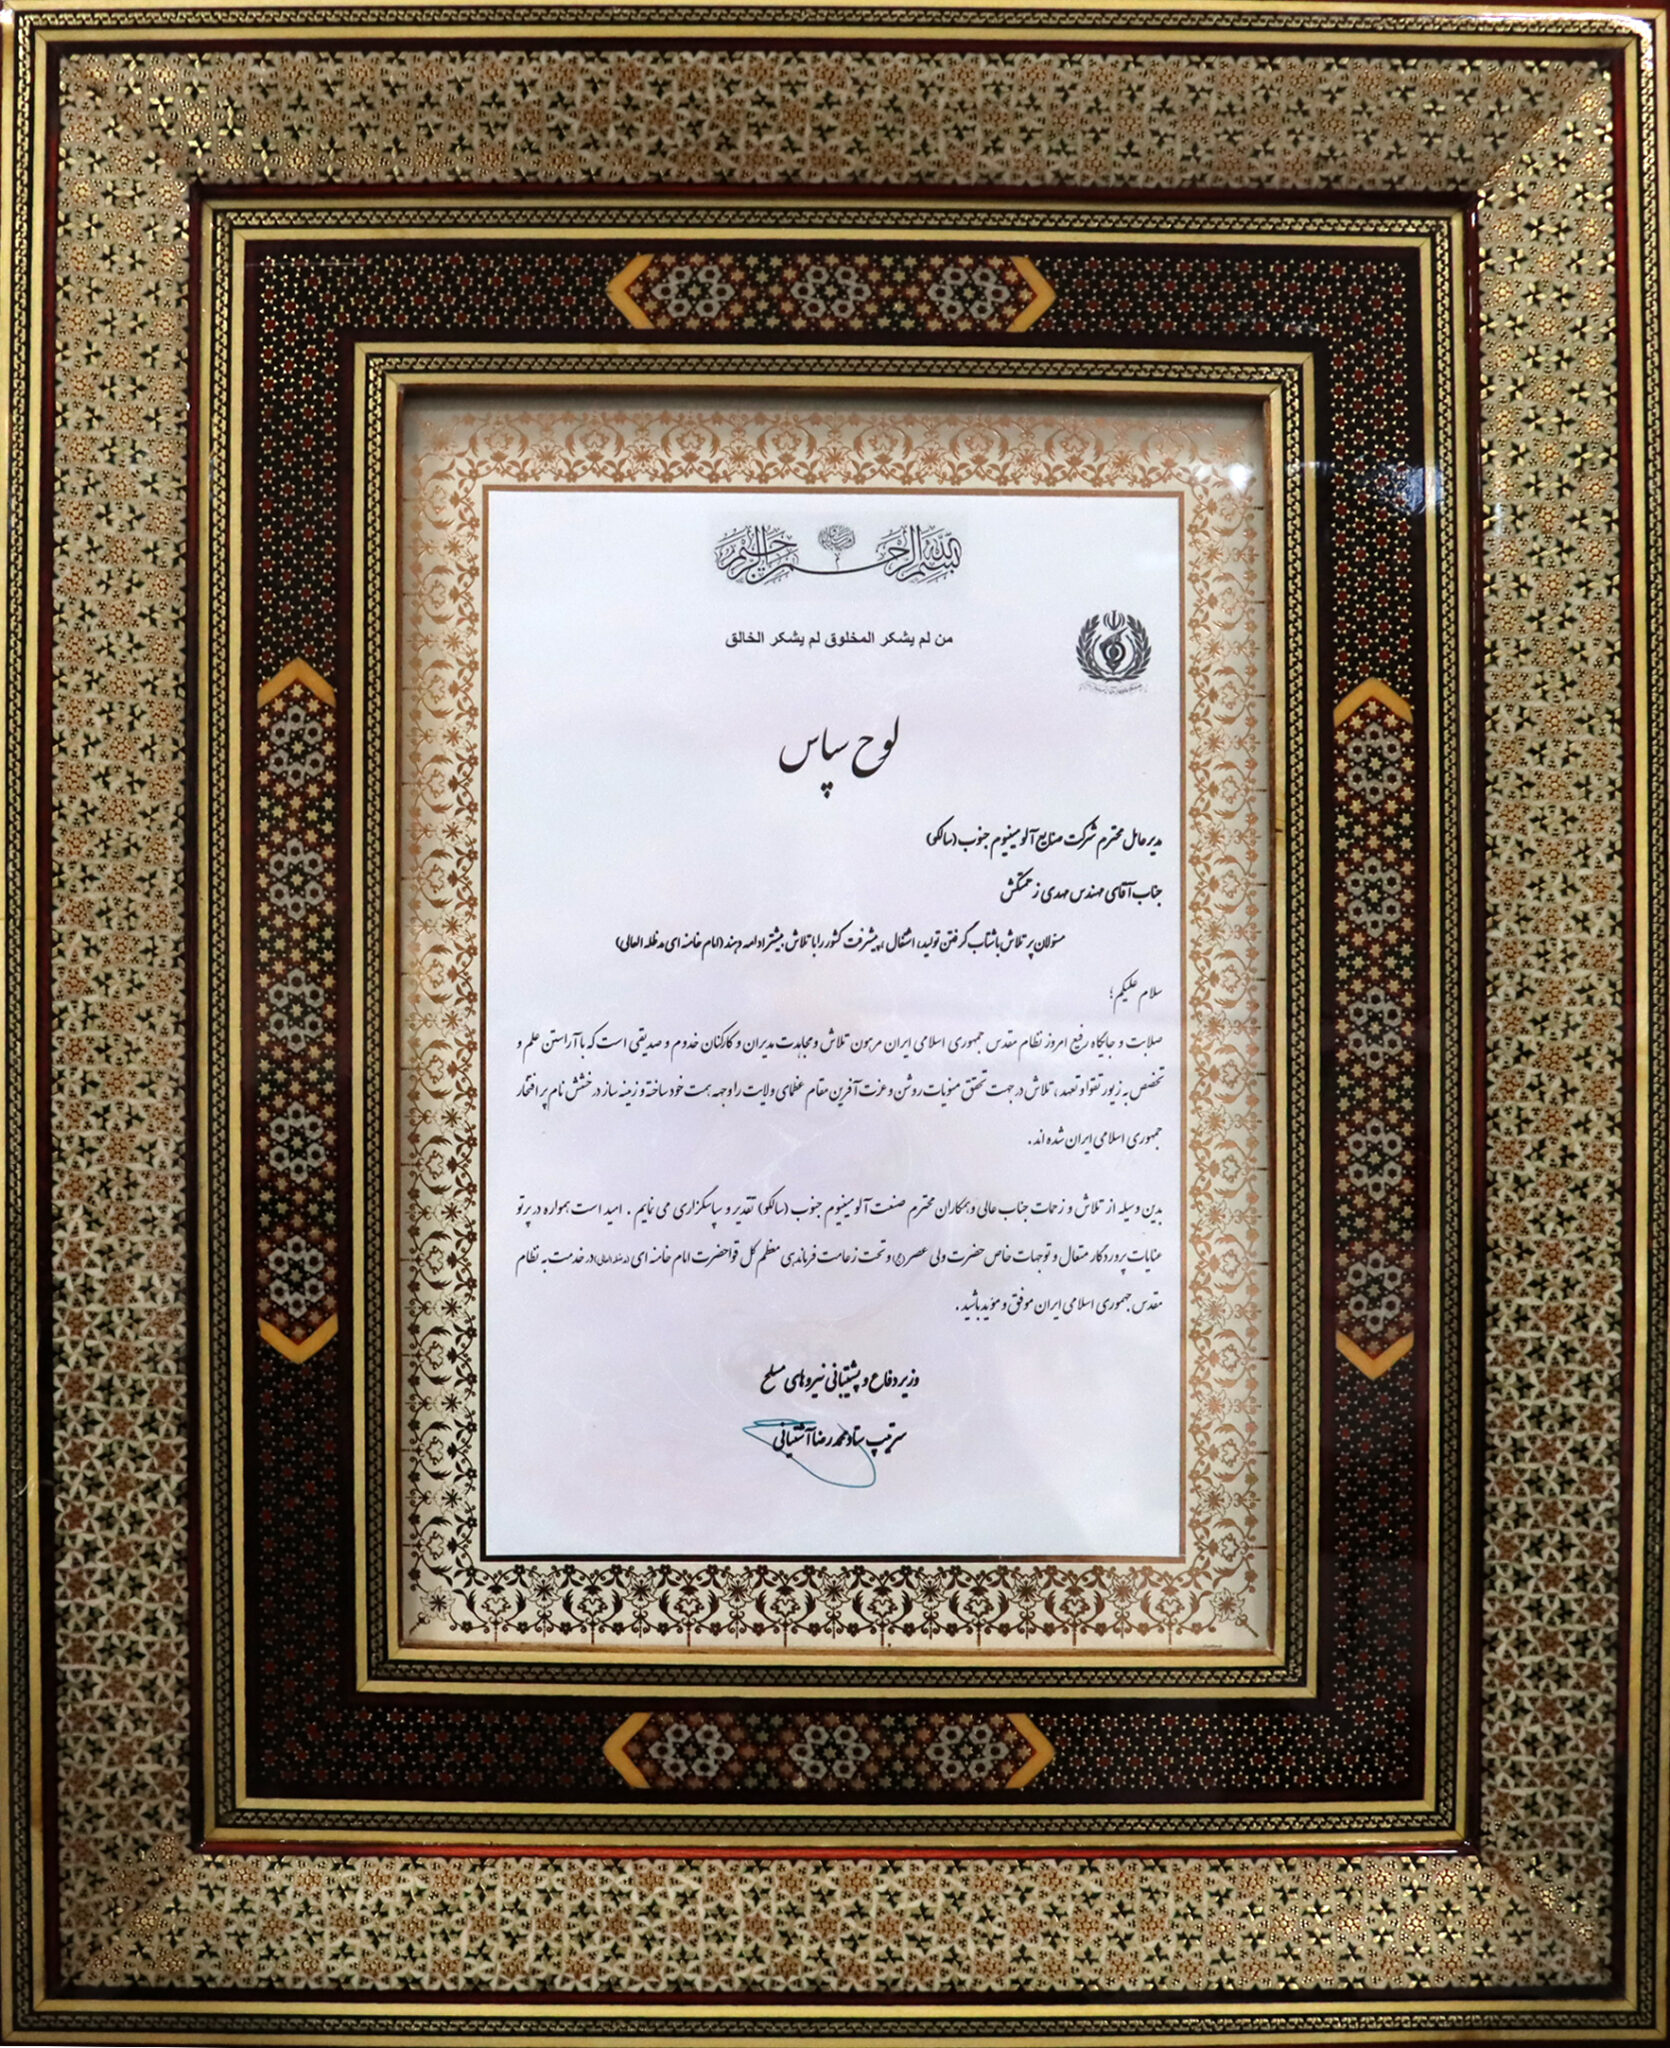 بسم الله الرحمن الرحیم
من لم يشكر المخلوق لم يشكر الخالق
لوح سپاس
مدیر عامل محترم شرکت صنایع آلومینیوم جنوب (سالکو)
جناب آقای مهندس مهدی زحمتکش
مسئولان پر تلاش با شتاب گرفتن تولید، اشتغال، پیشرفت کشور را با تلاش بیشتر ادامه دهند (امام خامنه ای مدظله العالی)
سلام علیکم؛
صلابت و جایگاه رفیع امروز نظام مقدس جمهوری اسلامی ایران مرهون تلاش و مجاهدت مدیران و کارکنان خدوم و صدیقی است که با آراستن علم و
تخصص به زیور تقوا و تعهد، تلاش در جهت تحقق منویات روشن و عزت آفرین مقام عظمای ولایت را وجهه همت خود ساخته و زمینه ساز درخشش نام پر افتخار
جمهوری اسلامی ایران شده اند.
بدین وسیله از تلاش و زحمات جناب عالی و همکاران محترم صنعت آلومینیوم جنوب (سالکو) تقدیر و سپاسگزاری می نمایم. امید است همواره در پرتو
عنایات پروردگار متعال و توجهات خاص حضرت ولی عصر (عج) و تحت زعامت فرماندهی معظم کل قوا حضرت امام خامنه ای (مدظله العالی) در خدمت به نظام
مقدس جمهوری اسلامی ایران موفق و موید باشید.
وزیر دفاع و پشتیبانی نیروهای مسلح
سرتیپ ستاد محمدرضا آشتیانی